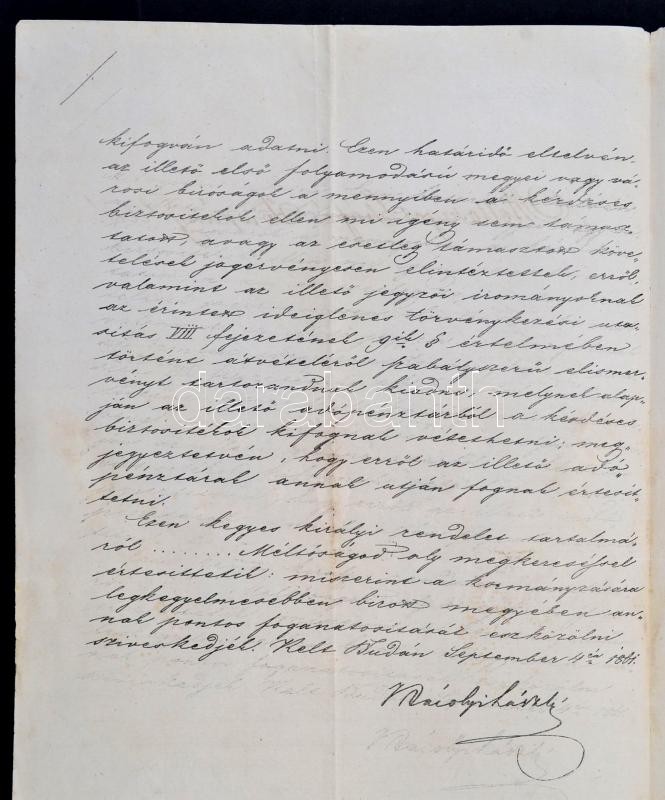 kifogván adatni. Ezen határidő eltelvén
az illető első folyamodású megyei vagy vá-
rosi biróságok a mennyiben a kérdéses
biztositékok ellen mi igény sem támasz-
tatott, avagy az esetleg támasztott köve-
telések jogérvényesen elintéztettek, erről,
valamint az illető jegyzői irományoknak
az érintett ideiglenes törvénykezési uta-
sitás VIII fejezetének 9ik § értelmében
történt átvételéről szabályszerű elismer-
vényt tartozandnak kiadni, melynek alap-
ján az illető adópénztárból a kérdéses
biztositékok kifognak vétethetni; meg-
jegyeztetvén, hogy erről az illető adó-
pénztárak annak utján fognak értesit-
tetni.
Ezen kegyes királyi rendelet tartalmá-
ról ........ Méltóságod oly megkereséssel
értesittetik: miszerint a kormányzására
legkegyelmesebben bizott megyében an-
nak pontos foganatositását eszközölni
sziveskedjék. Kelt Budán September 4én 1861.
darabanth